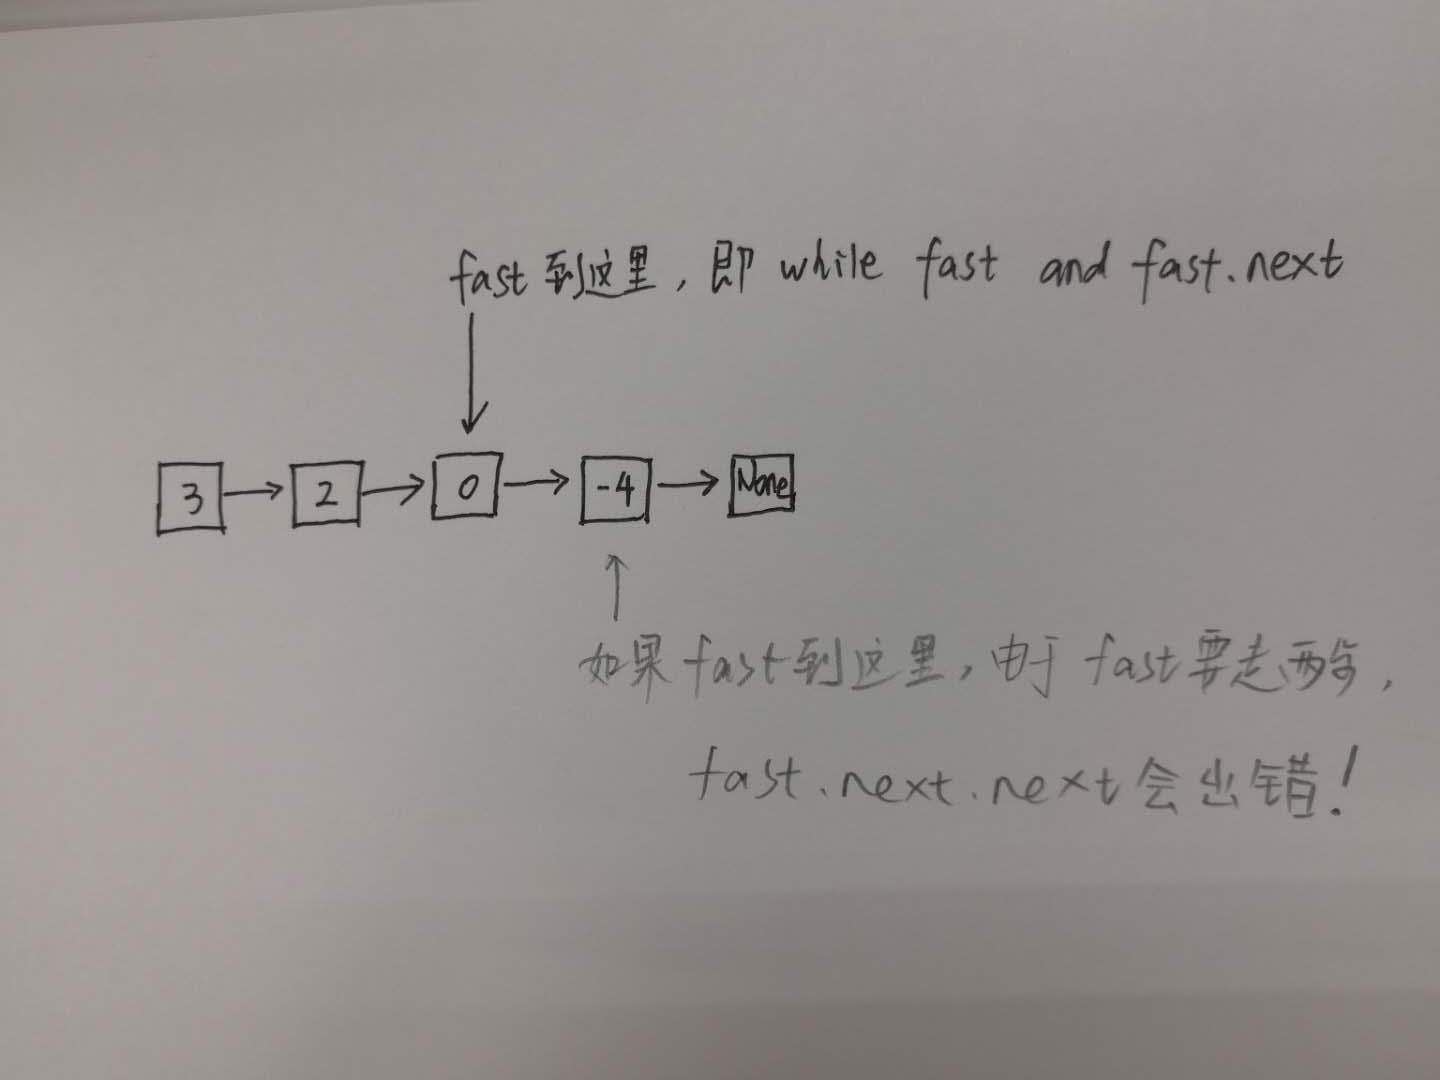 fast到这里，即 while fast and fast.next
3 2 0 -4 None
如果fast到这里，由于fast要走两步，
fast.next.next会出错！